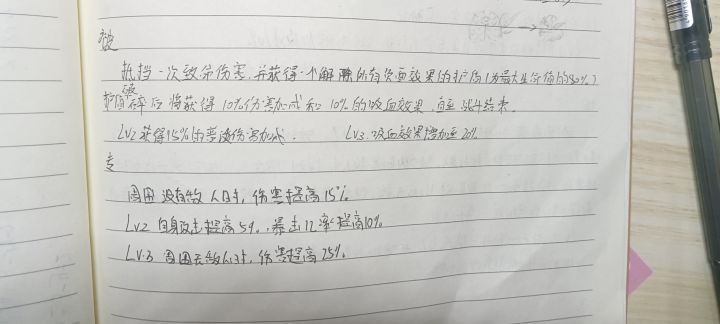 被
抵挡一次致命伤害,并获得一个解除所有负面效果的护盾(为最大生命值的30%)
护盾破碎后将获得10%伤害加成和10%的吸血效果,直至战斗结束.
Lv2 获得15%的普攻伤害加成. Lv3.吸血效果增加至20%
专
周围没有敌人时,伤害提高15%.
Lv2 自身攻击提高5%.,暴击几率提高10%
Lv.3 周围无敌人时,伤害提高25%.